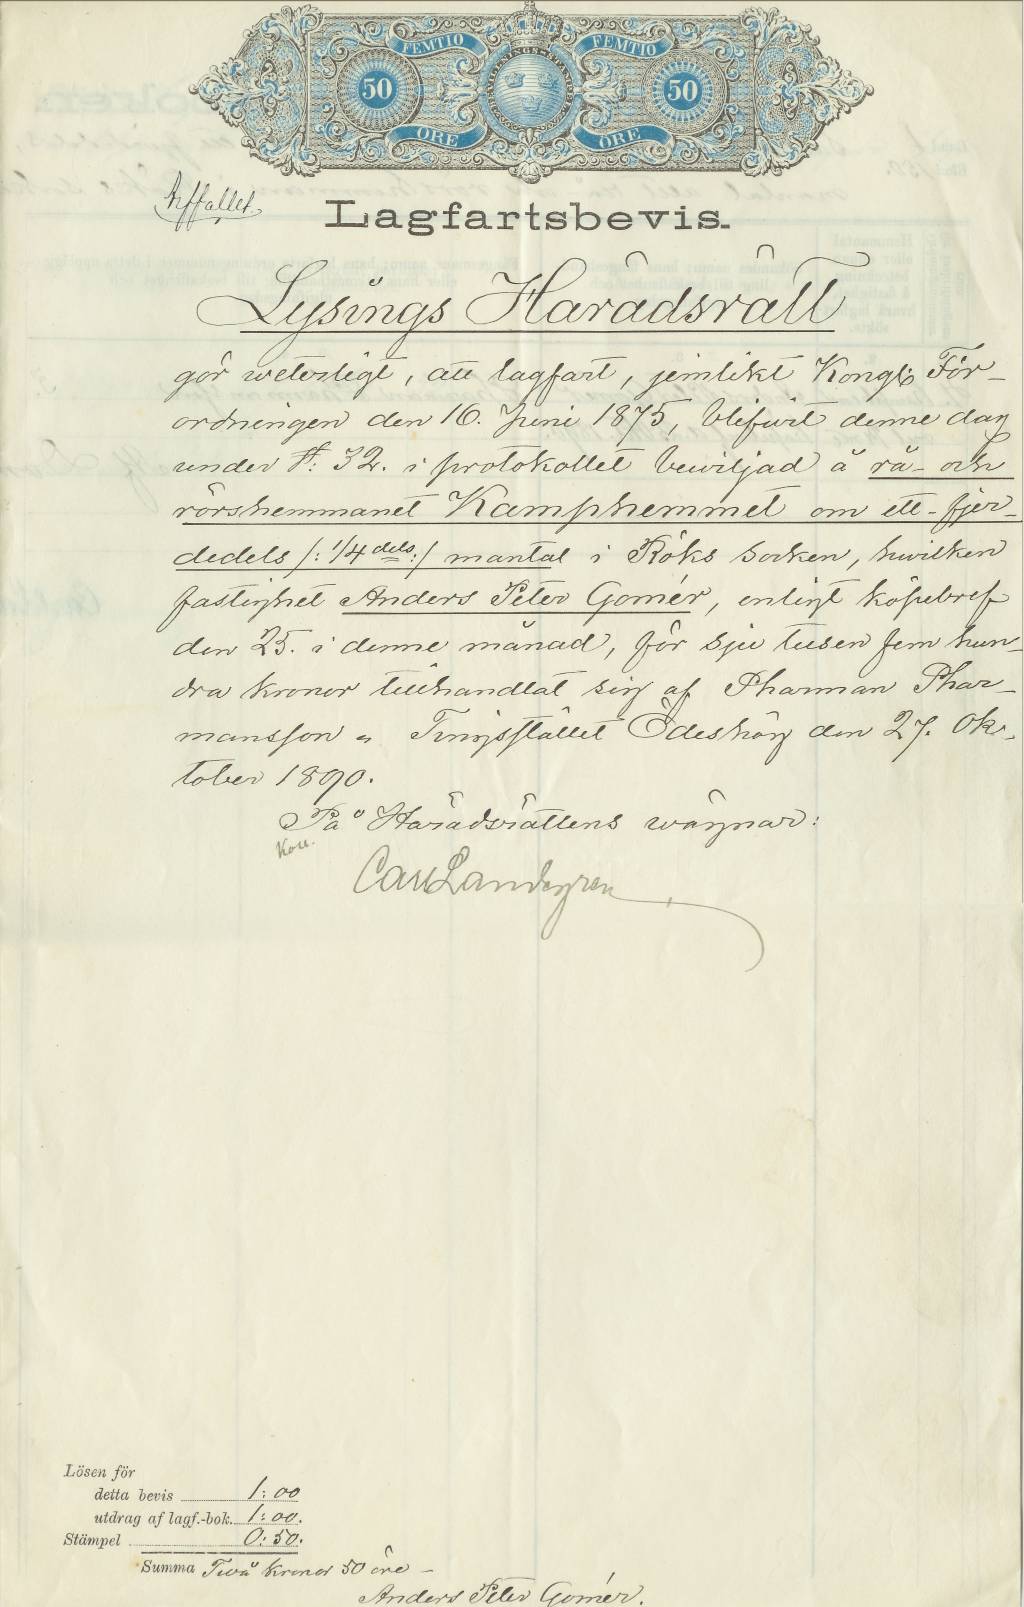 FEMTIO FEMTIO
50 50
ÖRE ÖRE
Affallet.
Lagfartsbevis.
Lysings Häradsrätt
gör weterligt, att lagfart, jemlikt Kongl. För-
ordningen den 16. Juni 1875, blifvit denne dag
under §: 32. i protokollet bewiljad å rå- och
rörshemmanet Kamphemmet om ett-fjer-
dedels /: 1/4 dels :/ mantal i Röks socken, hwilken
fastighet Anders Peter Gomér, enligt köpebref
den 25. i denne månad, för sju tusen fem hun-
dra kronor tillhandlat sig af Pharman Phar-
mansson. Tingsstället Ödeshög den 27. Ok-
tober 1890.
På Häradsrättens wägnar:
Carl Landgren
Lösen för
detta bevis 1:00
utdrag af lagf.-bok. 1:00.
Stämpel 0:50.
Summa Två kronor 50 öre –
Anders Peter Gomér.